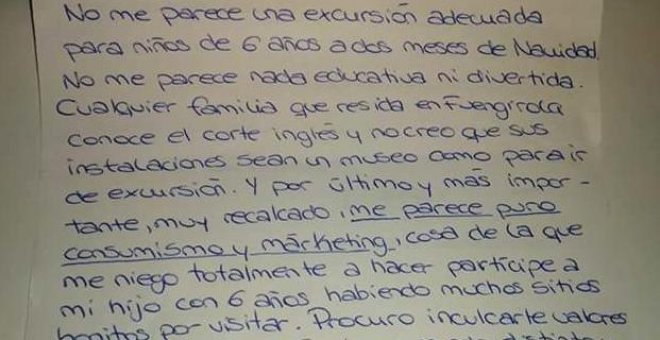 No me parece una excursión adecuada
para niños de 6 años a dos meses de Navidad.
No me parece nada educativa ni divertida.
Cualquier familia que resida en Fuengirola
conoce el corte inglés y no creo que sus
instalaciones sean un museo como para ir
de excursión. Y por último y más impor-
tante, muy recalcado, me parece puro
consumismo y márketing, cosa de la que
me niego totalmente a hacer partícipe a
mi hijo con 6 años habiendo muchos sitios
bonitos por visitar. Procuro inculcarle valores